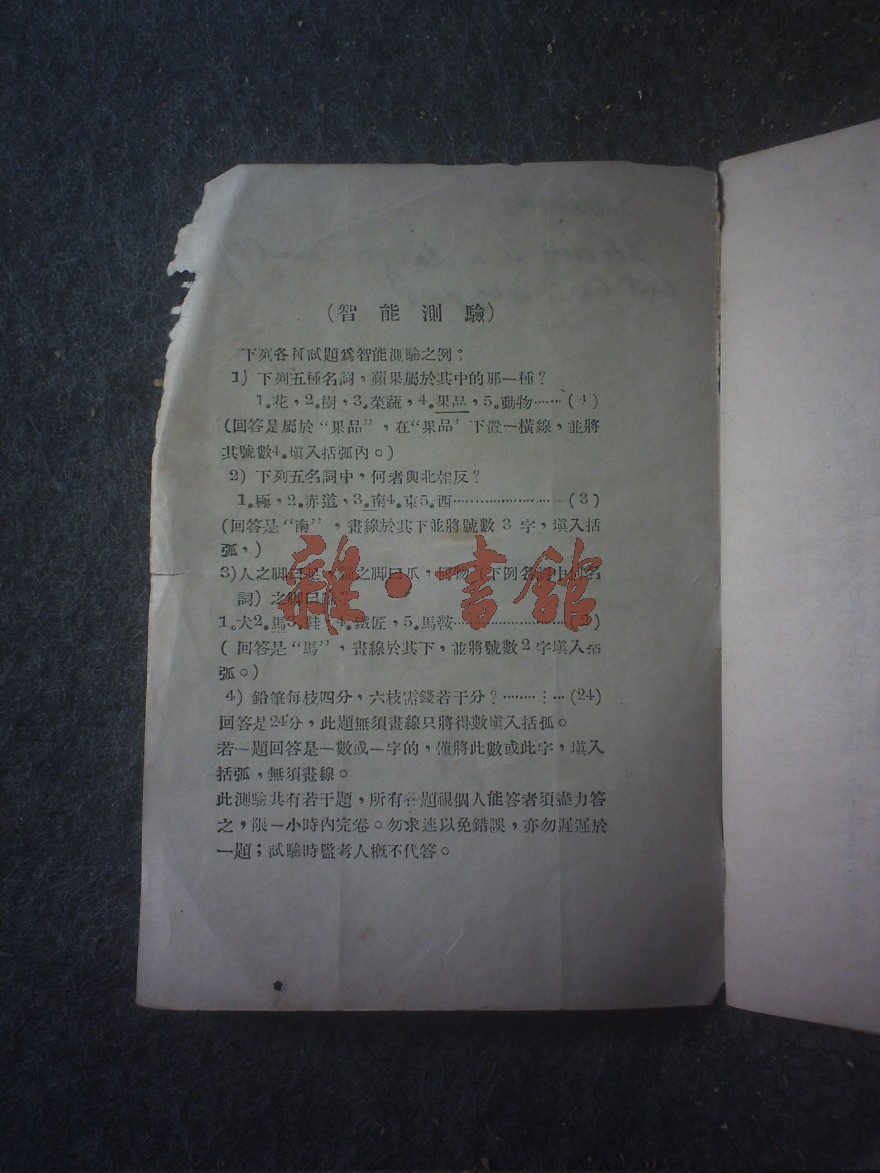 (智能測驗)
下列各種試題爲智能測驗之例:
1) 下列五種名詞,蘋果屬於其中的那一種?
1。花,2。樹,3。菜蔬,4。果品,5。動物……(4)
(回答是屬於“果品”,在“果品’下置一橫線,並將
其號數4。填入括弧內。)
2) 下列五名詞中,何者與北相反?
1。極,2。赤道,3。南4。東5。西……………………(3)
(回答是“南”,畫線於其下並將號數3字,填入括
弧,)
3)人之脚曰足,之脚曰爪,何物(下例名詞中何名
詞)之脚曰
1。犬2。馬3。鞋,4。鐵匠,5。馬鞍……………………(2)
(回答是“馬”,畫線於其下,並將號數2字填入括
弧。)
4) 鉛筆每枝四分,六枝需錢若干分?………⋮…(24)
回答是24分,此題無須畫線只將得數填入括弧。
若一題回答是一數或一字的,僅將此數或此字,填入
括弧,無須畫線。
此測驗共有若干題,所有各題視個人能答者須盡力答
之,限一小時內完卷。勿求速以免錯誤,亦勿遲遲於
一題;試驗時監考人槪不代答。
雜·書館